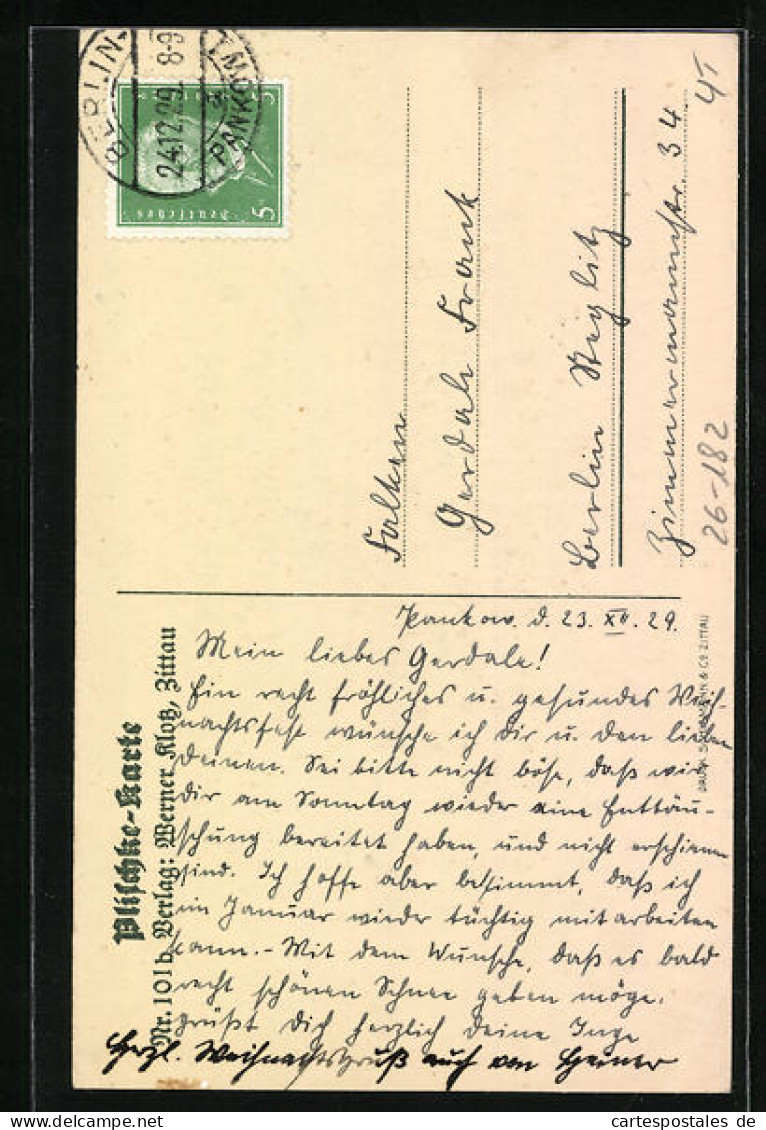 BERLIN-
PANKOW 1
24.12.29. 8-9
Deutsches
5
5
4T
Falken
Gerdale Frank
Berlin Steglitz
Zimmermannstr. 34
26-182
Plischke-Karte
Nr. 101b Verlag: Werner Klotz, Zittau
& CO ZITTAU
Pankow. d. 23. XII. 29.
Mein liebes Gerdale!
Ein recht fröhliches u. gesundes Weih-
nachtsfest wünsche ich Dir u. den lieben
Deinen. Sei bitte nicht böse, daß wir
Dir am Sonntag wieder eine Enttäu-
schung bereitet haben, und nicht erschienen
sind. Ich hoffe aber bestimmt, daß ich
im Januar wieder tüchtig mitarbeiten
kann. - Mit dem Wunsche, daß es bald
recht schönen Schnee geben möge,
grüßt Dich herzlich Deine Inge
Herzl. Weihnachtsgruß auch von Heiner
www.cartespostales.de